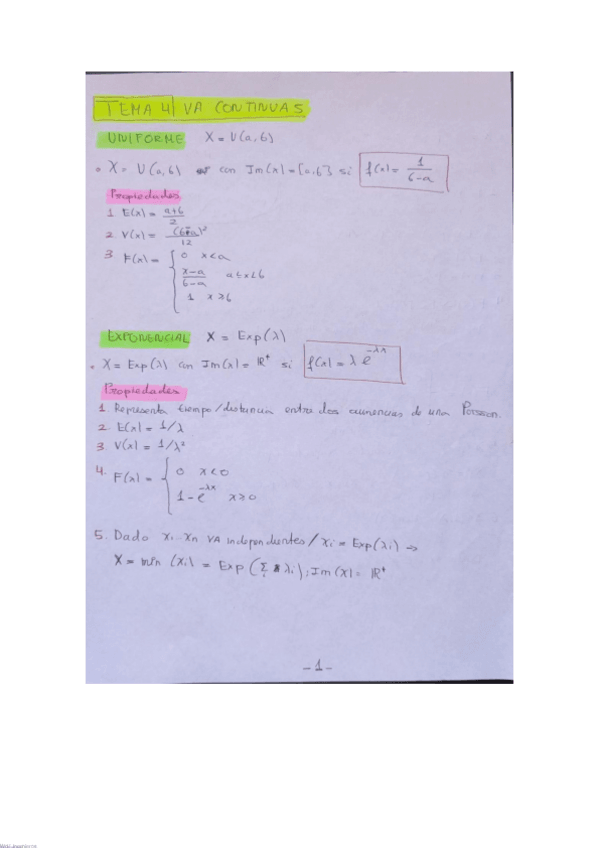 TEMA 4 VA CONTINUAS
UNIFORME X = U(a,b)
X = U(a,b) con Im(x) = [a,b] si f(x) = 1/(b-a)
Propiedades
1 E(x) = (a+b)/2
2 V(x) = (b-a)²/12
3 F(x) = { 0 x<a
(x-a)/(b-a) a≤x<b
1 x≥b
EXPONENCIAL X = Exp(λ)
X = Exp(λ) con Im(x) = ℝ⁺ si f(x) = λ e^(-λx)
Propiedades
1. Representa tiempo/distancia entre dos de una
2. E(x) = 1/λ
3 V(x) = 1/λ²
4. F(x) = { 0 x<0
1-e^(-λx) x≥0
5. Dado x₁...xn VA independientes / xi = Exp(λi) ⇒
X = mín (xi) = Exp (Σ λi); Im(X) = ℝ⁺
-1-